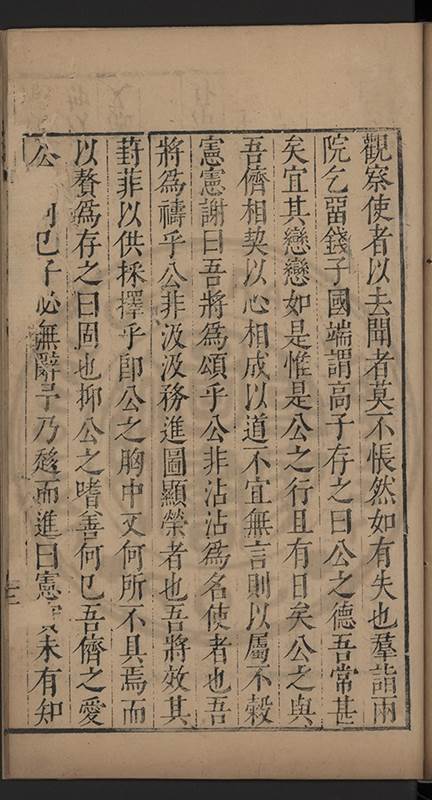 觀察使者以去聞者莫不悵然如有失也羣詣兩
院乞留錢子國端謂高子存之曰公之德吾常甚
矣宜其戀戀如是惟是公之行且有日矣公之與
吾儕相契以心相成以道不宜無言則以屬不榖
憲憲謝曰吾將為頌乎公非沾沾為名使者也吾
將為禱乎公非汲汲務進圖顯榮者也吾將效其
葑菲以供採擇乎卽公之胸中又何所不具焉而
以贅為存之曰固也抑公之嗜善何已吾儕之愛
公何已子必無辭予乃趨而進曰憲未有知